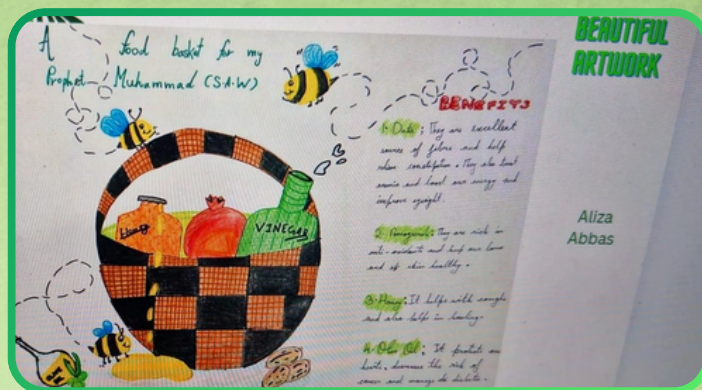 A food basket for my
Prophet Muhammad (S.A.W)
BEAUTIFUL
ARTWORK
BENEFITS
1. Date; They are excellent
source of fibre and help
relieve constipation. They also treat
and boost our energy and
improve eyesight.
2. They are rich in
anti-oxidants and keep our bones
and skin healthy.
3. Honey: It helps with cough
and also helps in healing.
4. Olive Oil; It protects our
heart, decreases the risk of
and manage
Honey
VINEGAR
Aliza
Abbas